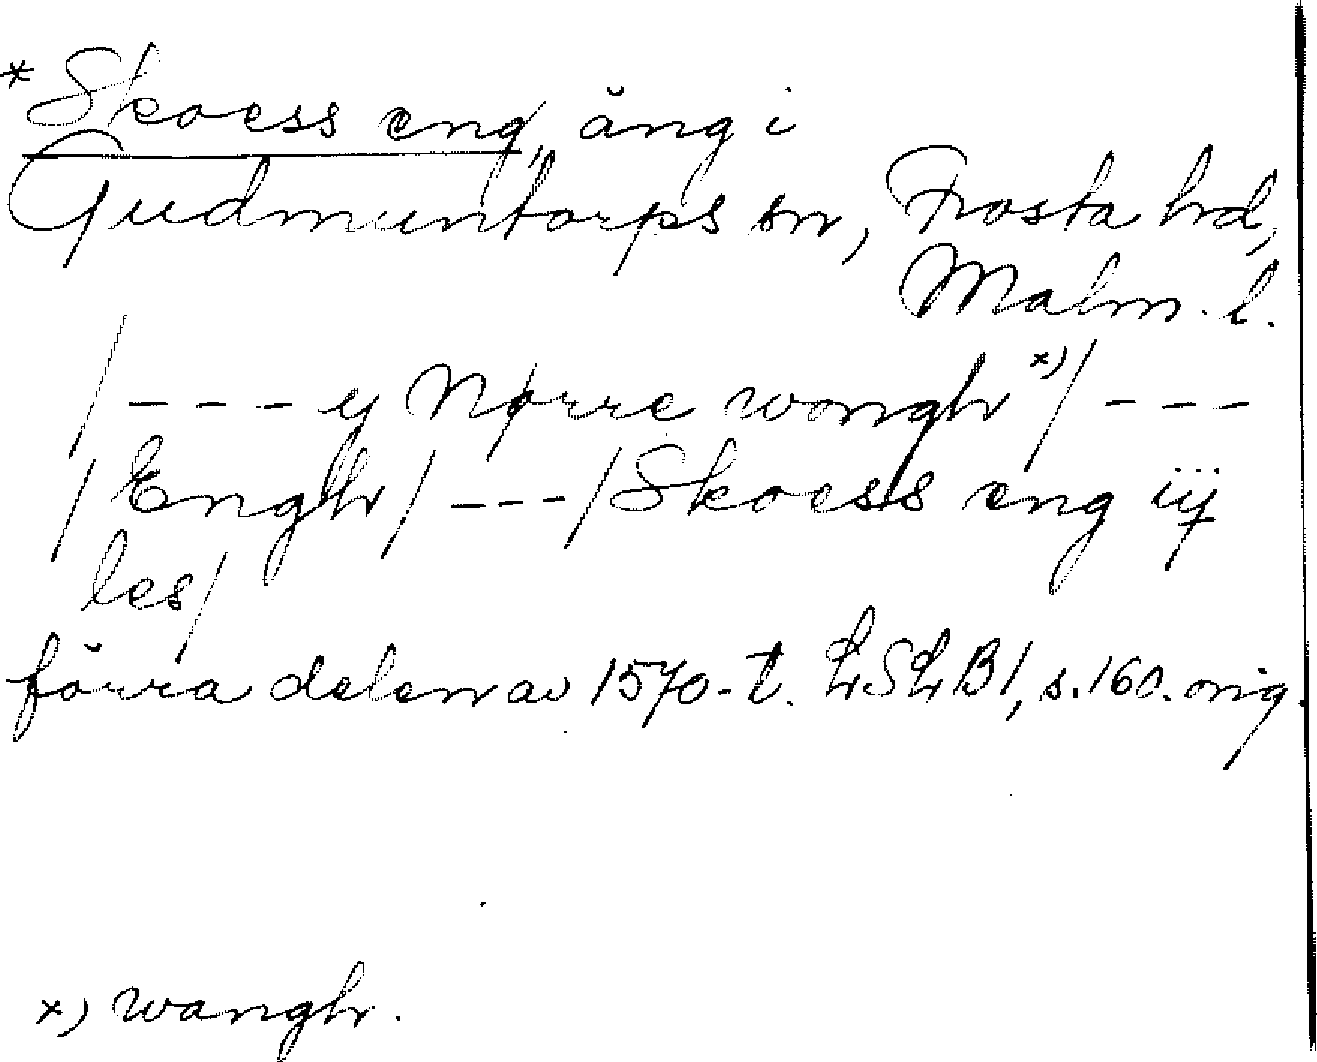 * Skoess eng, äng i
Gudmuntorps sn, Frosta hd,
Malm. l.
/ - - - y Nørre wongh x) / - - -
/ Engh / - - - / Skoess eng iij
les /
förra delen av 1570-t. LSLB1, s. 160. orig.
x) wangh.